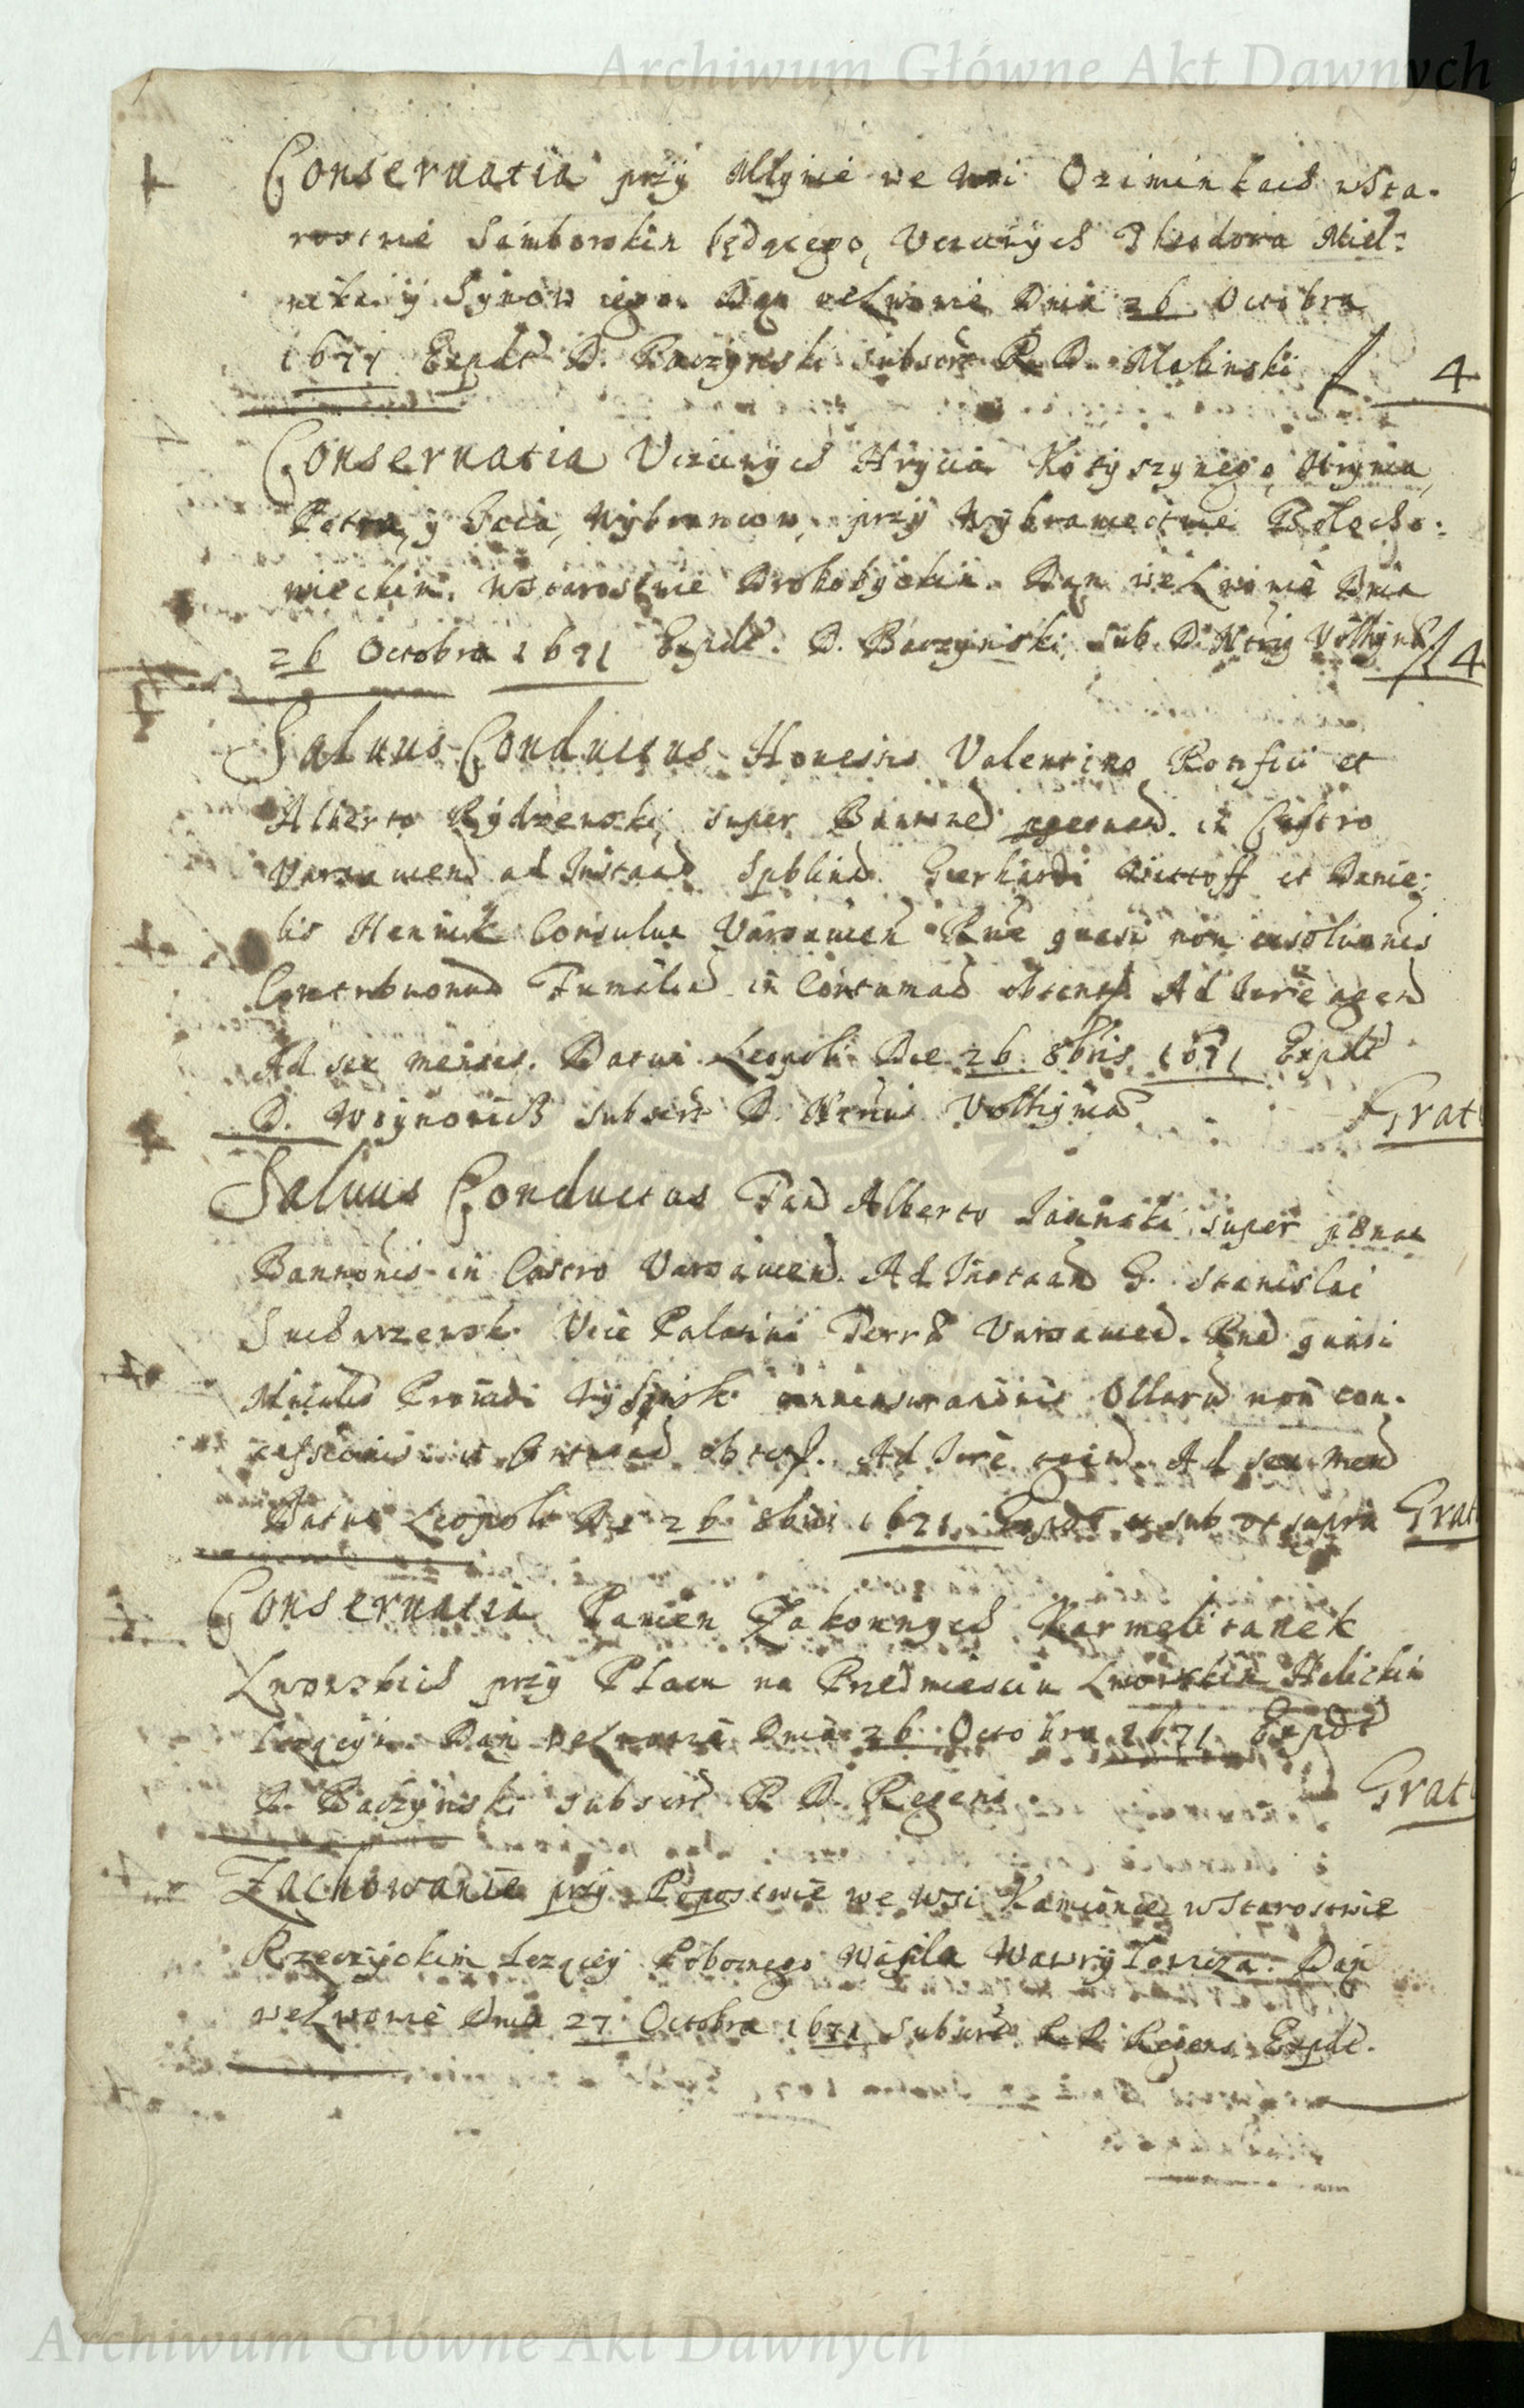 Archiwum Główne Akt Dawnych
Conseruatia przÿ Młÿnie we wsi Oziminkach wSta-
rostwie Samborskim będącego, Vczciwÿch Theodora Miel-
nika ÿ Sÿnow iego. Dan weLwowie Dnia 26 Octobra
1671 Expdt D. Baczÿnski subscrt R. D. Malinski fl 4
Conseruatia Vczciwÿch Hrÿcia Kotÿszÿnego, Hrynia,
Petra, ÿ Fecia, Wÿbrancow, przÿ Wÿbraniectwie Bolecho-
wieckim, wStarostwie Drohobÿckim. Dan weLwowie Dnia
26 Octobra 1671 Expdt. D. Baczÿnski, Sub. D. Ntrÿ Volhÿniæ fl 4
Saluus Conductus Honestis Valentino et
Alberto Rÿdzewski, super Bannned in Castro
Varsauiend ad Instaad Spblium Gierhardi Wittoff et Danie-
lis Henrick Consulum Varsauien Rne quasi non exsolutionis
Contributionum in Contumad obtent. Ad Iure agend
Ad sex menses. Datum Leopoli Die 26 8bris 1671 Expdt
D. Woÿnowicz subscrt D. Ntrius Volhÿniæ Grat
Saluus Conductus Fand Alberto super pænas
Bannonis in Castro Varsauiend. Ad Instaad G. Stanislai
Vice Palatini Terræ Varsauied. Rne quasi
Ollarum non con-
cessionis in obtent. Ad Iure agend. Ad sex mend
Datum Leopoli Die 26 8bris 1671 Expdt et sub ut supra Grat
Conseruatia Panien Zakonnÿch Karmelitanek
Lwowskich przÿ Placu na Przedmiesciu Lwowskim Halickim
lezącÿm Dan weLwowie Dnia 26 Octobra 1671 Expdt
D. Baczÿnski subscrt R. D. Regens Grat
Zachowanie przÿ Popostwie we wsi Kamionce wStarostwie
Rzeczÿckim lezącÿ Pobornego Wasila Wawrÿłowicza. Dan
weLwowie Dnia 27 Octobra 1671 Subscrt R. D. Regens Expdt.
Archiwum Główne Akt Dawnych